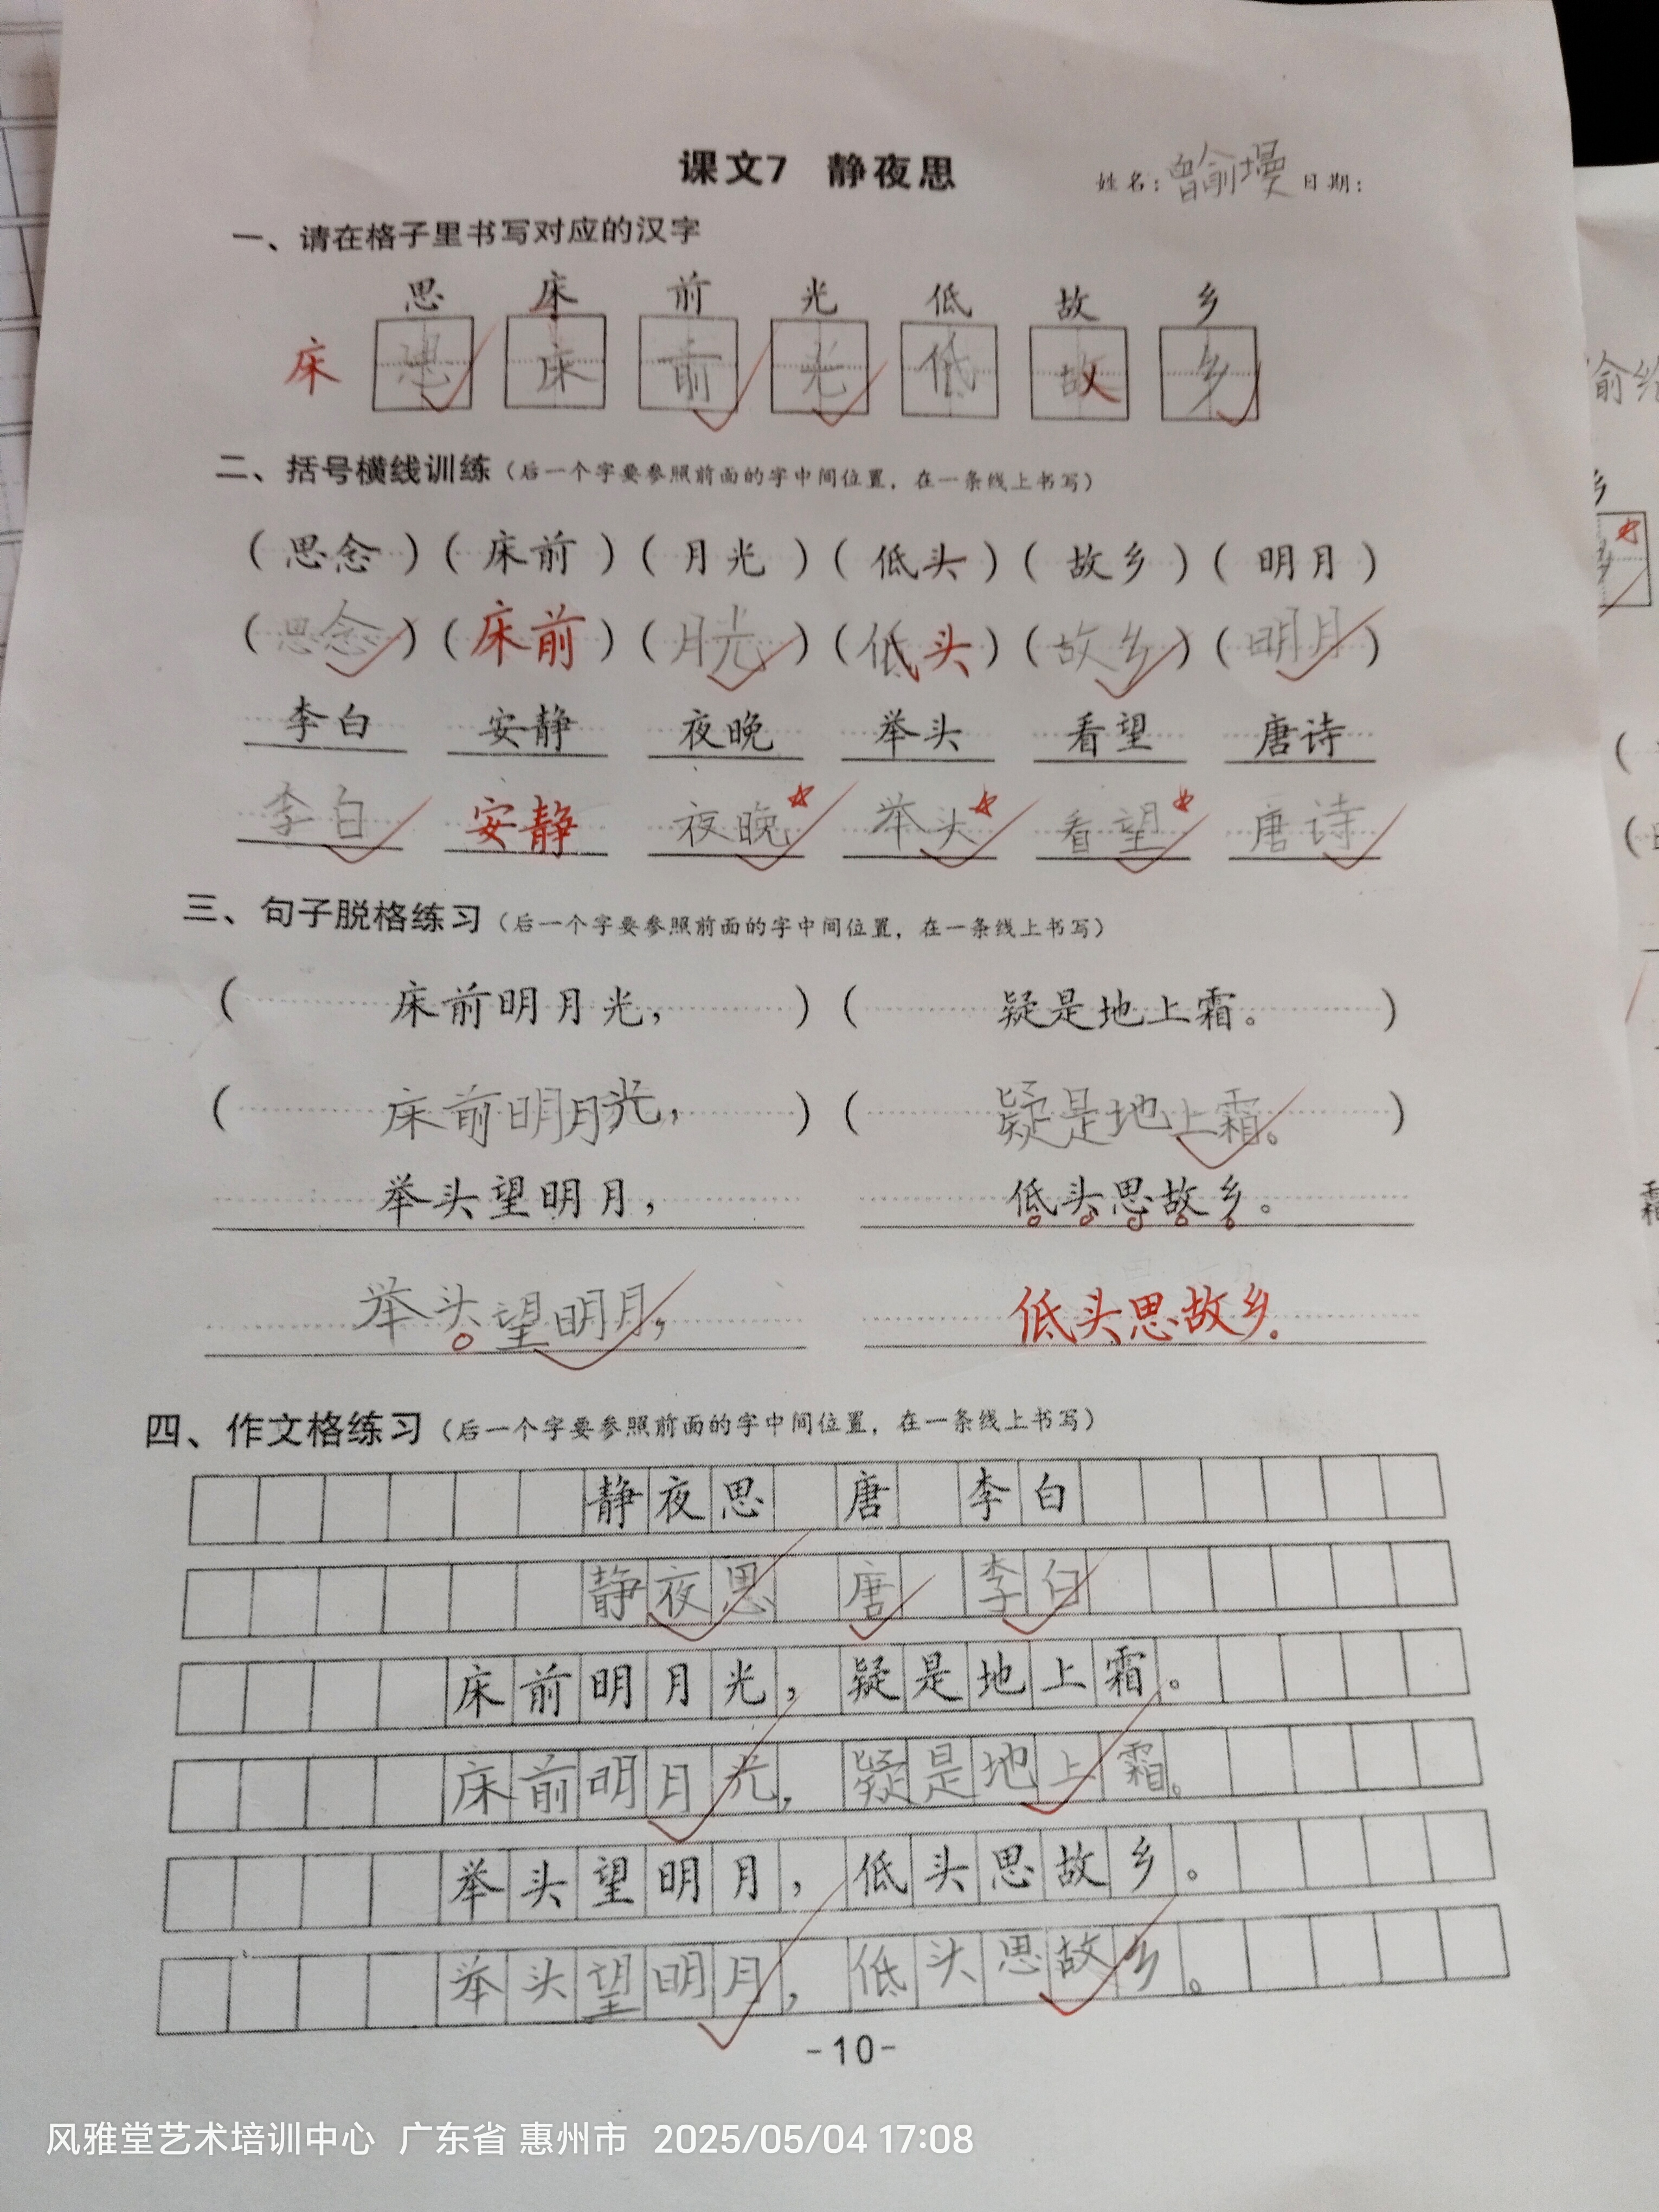 课文7 静夜思 姓名：曾俞墁 日期：
一、请在格子里书写对应的汉字
思 床 前 光 低 故 乡
床 思 床 前 光 低 故 乡
二、括号横线训练（后一个字要参照前面的字中间位置，在一条线上书写）
（思念）（床前）（月光）（低头）（故乡）（明月）
（思念）（床前）（月光）（低头）（故乡）（明月）
李白 安静 夜晚 举头 看望 唐诗
李白 安静 夜晚 举头 看望 唐诗
三、句子脱格练习（后一个字要参照前面的字中间位置，在一条线上书写）
（床前明月光，）（疑是地上霜。）
（床前明月光，）（疑是地上霜。）
举头望明月， 低头思故乡。
举头望明月， 低头思故乡.
四、作文格练习（后一个字要参照前面的字中间位置，在一条线上书写）
静夜思 唐 李白
静夜思 唐 李白
床前明月光，疑是地上霜。
床前明月光，疑是地上霜。
举头望明月，低头思故乡。
举头望明月，低头思故乡。
-10-
风雅堂艺术培训中心 广东省 惠州市 2025/05/04 17:08